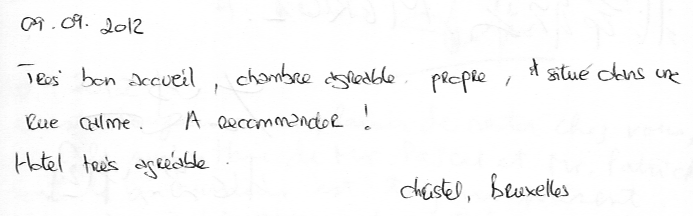 09.09.2012
Très bon accueil, chambre agréable. propre, & situé dans une
Rue calme. A Recommander !
Hotel très agréable.
christel, Bruxelles